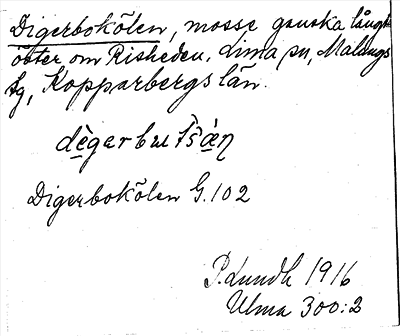 Digerbokölen, mosse ganska långt
öster om Risheden. Lima sn, Malungs
tg, Kopparbergs län.
Digerbokölen G.102
P. Lundh 1916
Ulma 300:2